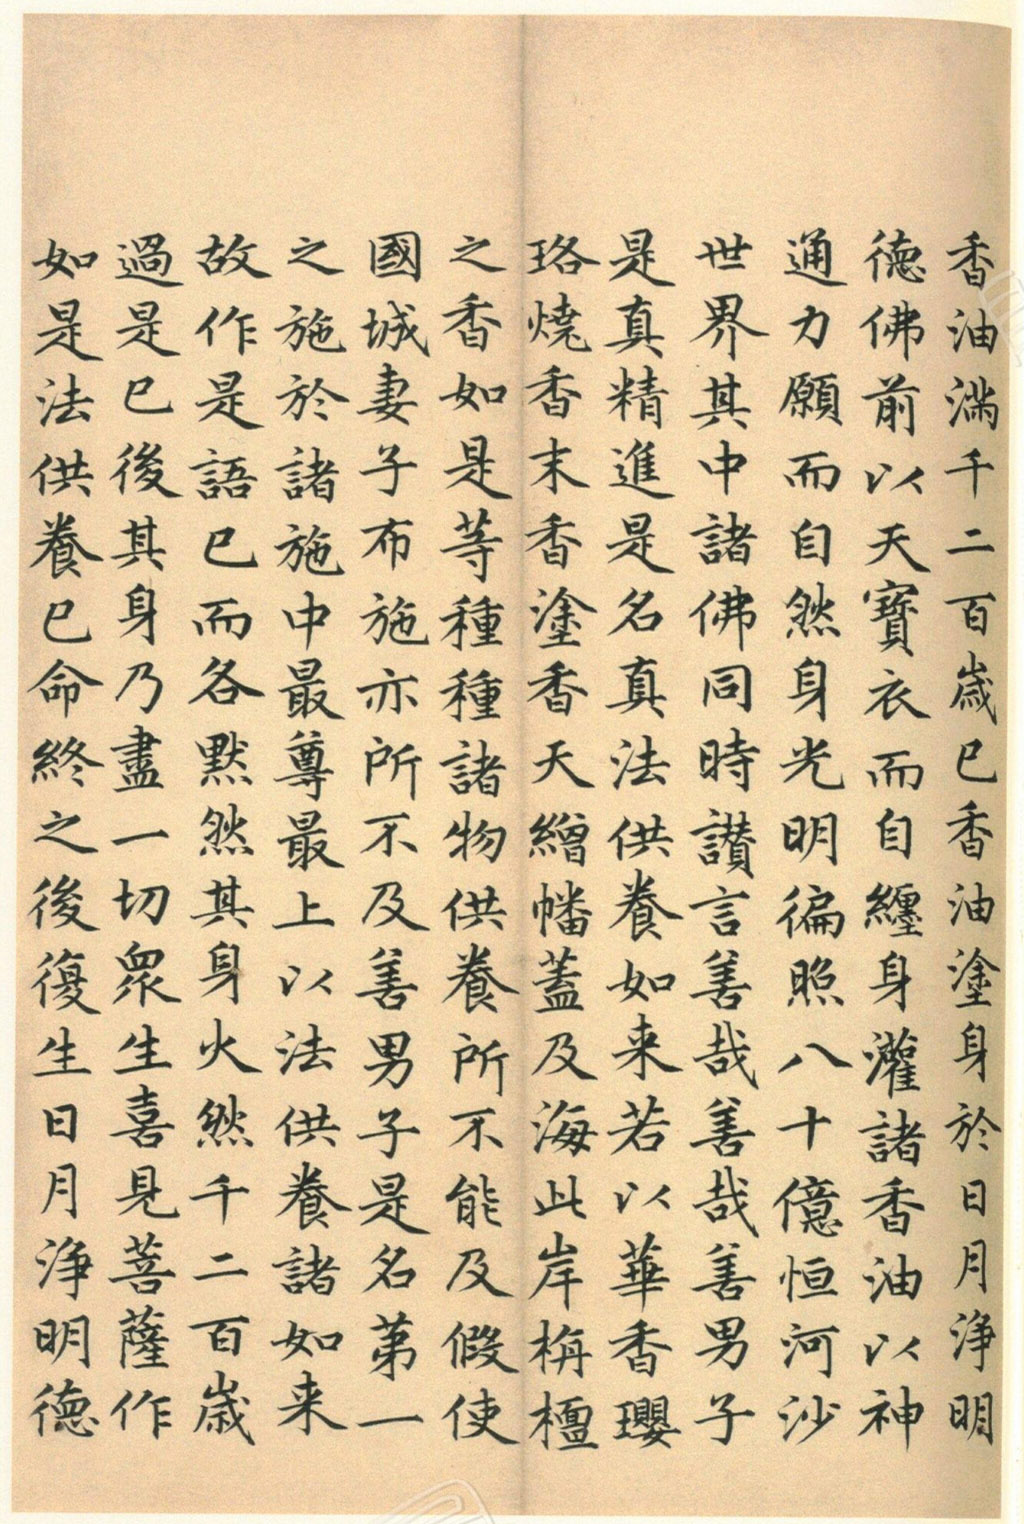 香油滿千二百歲已香油塗身於日月淨明
德佛前以天寶衣而自纏身灌諸香油以神
通力願而自然身光明徧照八十億恒河沙
世界其中諸佛同時讚言善哉善哉善男子
是真精進是名真法供養如来若以華香瓔
珞燒香末香塗香天繒幡蓋及海此岸栴檀
之香如是等種種諸物供養所不能及假使
國城妻子布施亦所不及善男子是名第一
之施於諸施中最尊最上以法供養諸如来
故作是語已而各默然其身火然千二百歲
過是已後其身乃盡一切眾生喜見菩薩作
如是法供養已命終之後復生日月淨明德